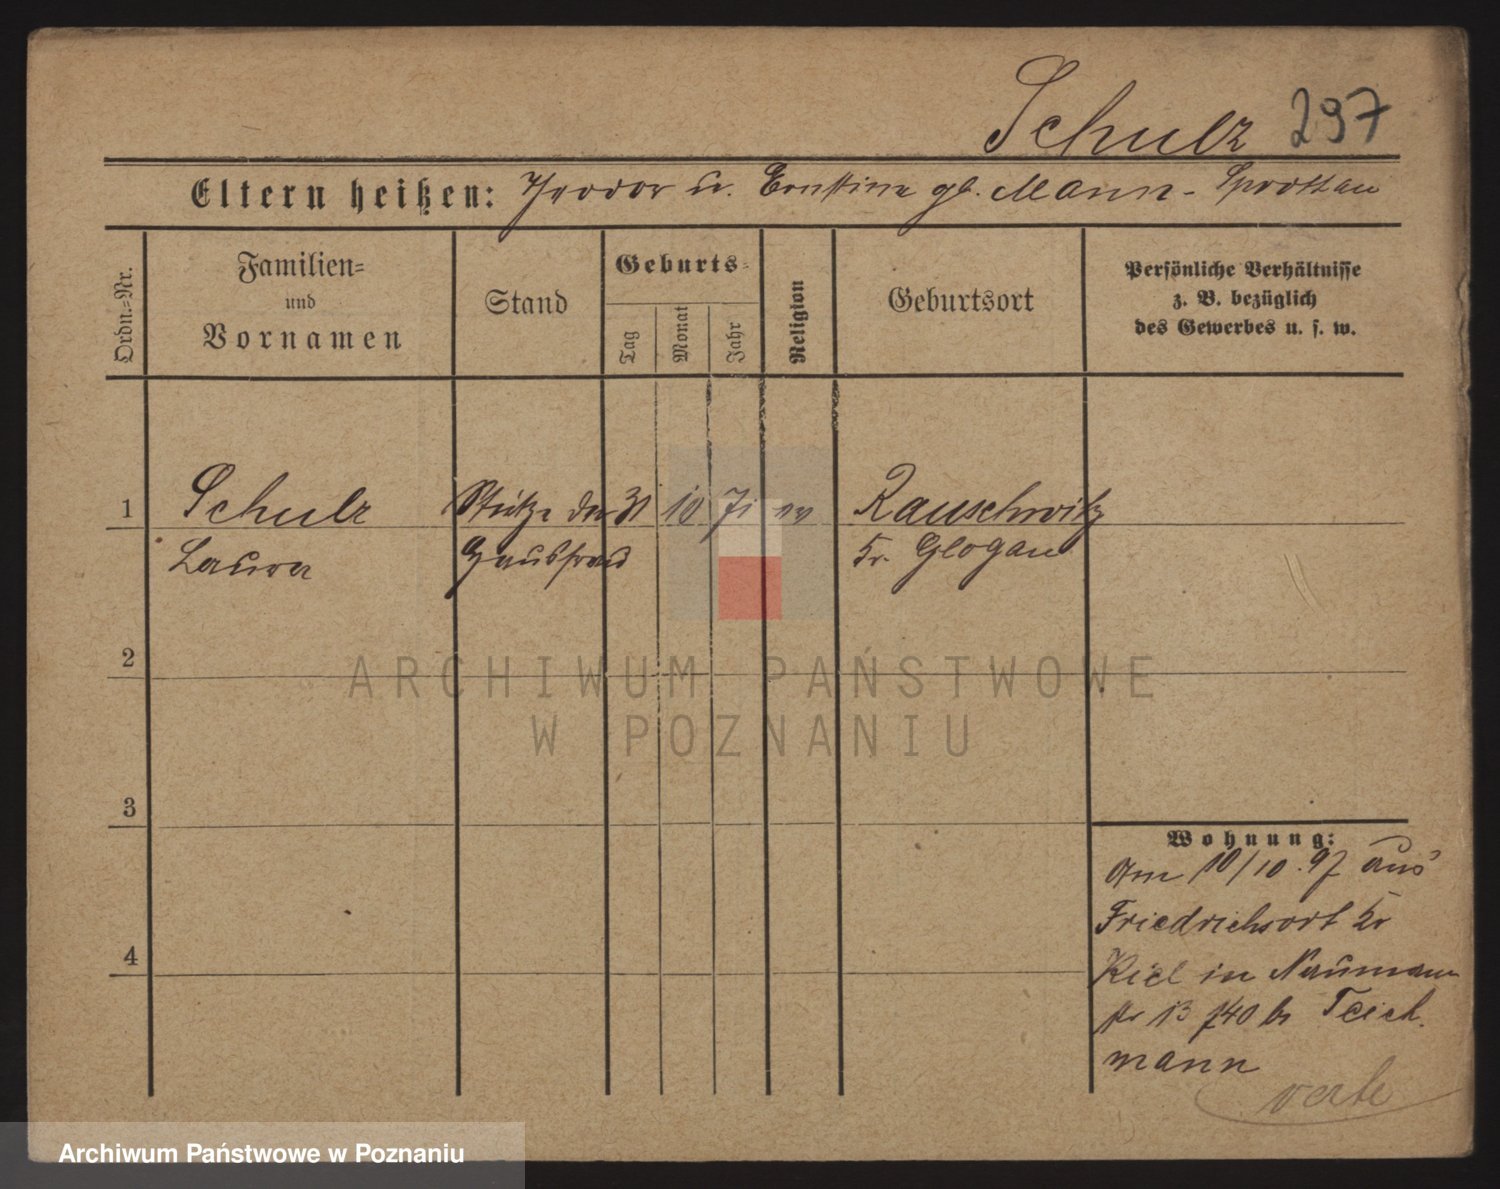 Schulz 297
Eltern heißen: Theodor u. Ernstine gb. Mann - Sprottau
Ordn.=Nr.
Familien=
und
Vornamen
Stand
Geburts=
Tag
Monat
Jahr
Religion
Geburtsort
Persönliche Verhältnisse
z. B. bezüglich
des Gewerbes u. s. w.
1 Schulz Stütze der 31 10 71 ev Rauschwitz
Laura Hausfrau Kr. Glogau
2
3
4
Wohnung:
Am 10/10. 97 aus
Friedrichsort Kr
Kiel in Naumann
str 13 740 bs Teich
mann
verte
ARCHIWUM PAŃSTWOWE
W POZNANIU
Archiwum Państwowe w Poznaniu